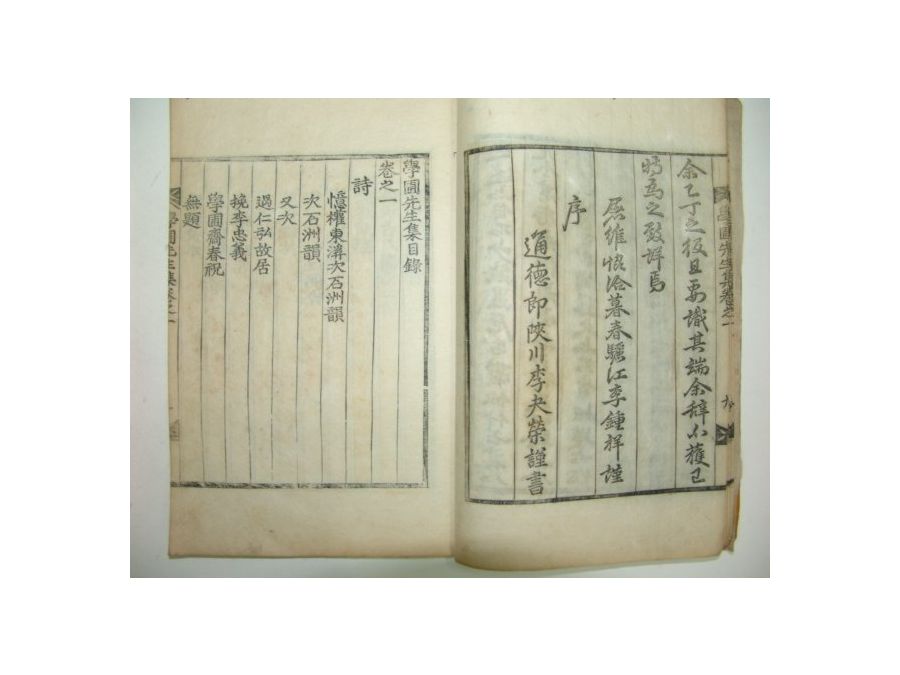 余乙丁之役且要識其端余辭不獲已
特爲之敍詳焉
屠維協洽暮春驪江李鍾祥謹
序
通德郎陜川李夬榮謹書
學圃先生集卷之一
學圃先生集目錄
卷之一
詩
憶權東湃次石洲韻
次石洲韻
又次
過仁弘故居
挽李忠義
學圃齋春祝
無題
學圃先生集卷之一